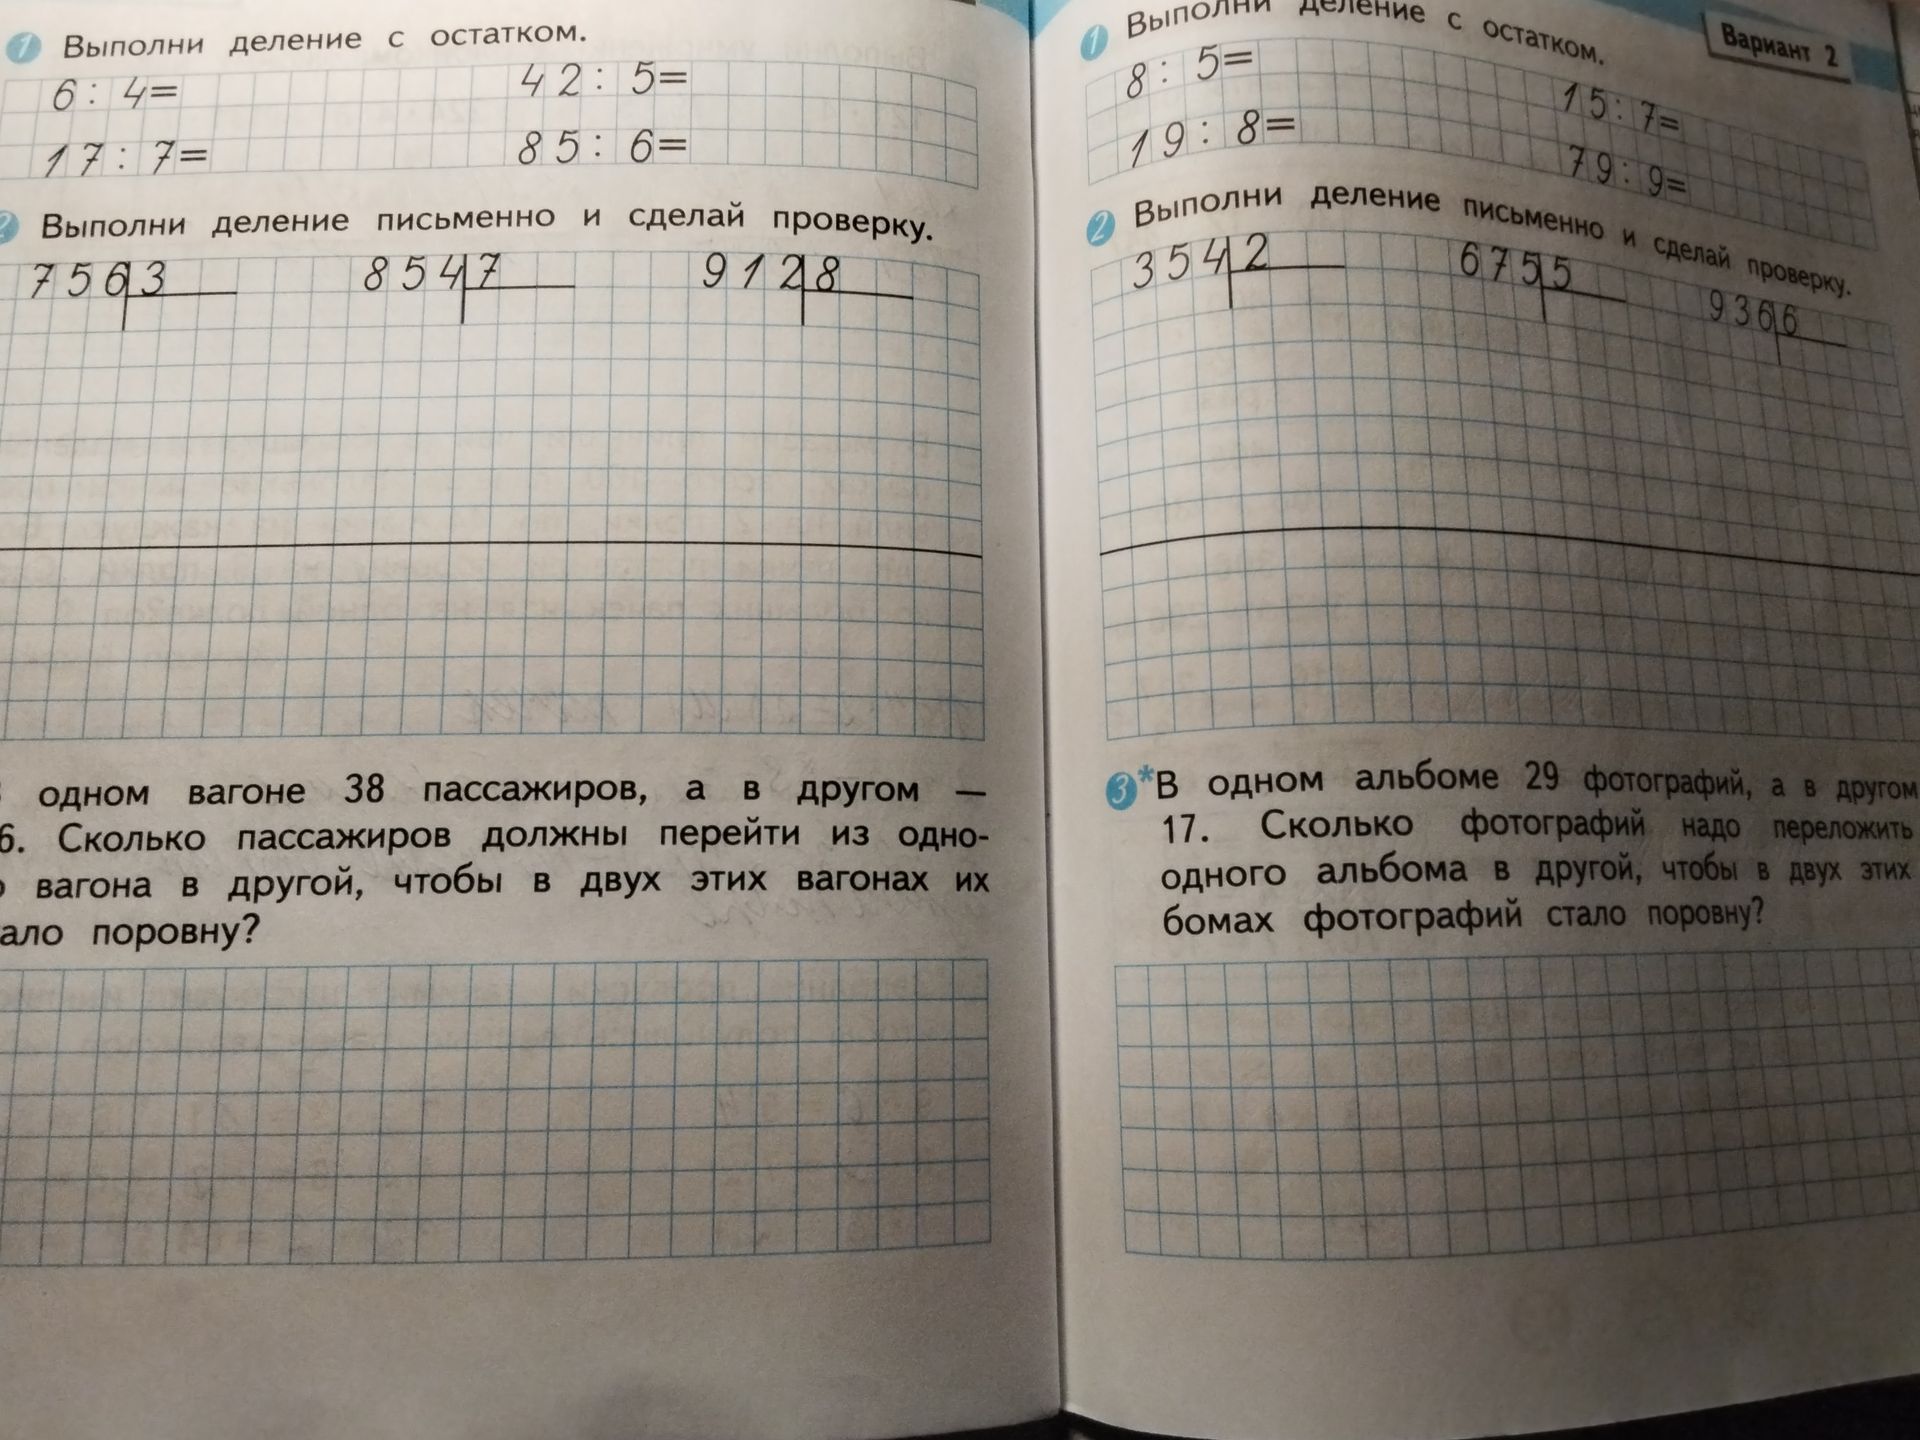 1 Выполни деление с остатком.
6 : 4 =
42 : 5 =
17 : 7 =
85 : 6 =
2 Выполни деление письменно и сделай проверку.
756 3
854 7
912 8
одном вагоне 38 пассажиров, а в другом —
6. Сколько пассажиров должны перейти из одно-
вагона в другой, чтобы в двух этих вагонах их
ало поровну?
Вариант 2
1 Выполни деление с остатком.
8 : 5 =
15 : 7 =
19 : 8 =
79 : 9 =
2 Выполни деление письменно и сделай проверку.
354 2
675 5
936 6
3* В одном альбоме 29 фотографий, а в другом
17. Сколько фотографий надо переложить
одного альбома в другой, чтобы в двух этих
бомах фотографий стало поровну?